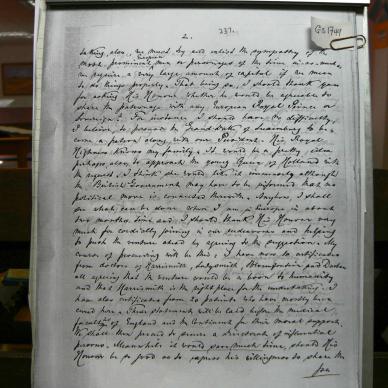 2.
237.
GS 1741
taking, also, we must try and enlist the sympathy of the
most prominent European men or personages of the time in as much as
we require a very large amount of capital if we mean
to do things properly. That being so, I should thank you
for asking His Honour whether he would be agreeable to
share the patronage with any European Royal Prince or
Sovereign? For instance I should have no difficulty,
I believe, to persuade the Grand Duke of Luxemburg to be-
come a patron along with our President. His Royal
Highness knows my family. It would be a pretty idea
perhaps, also, to approach the young Queen of Holland with
the request. I think she would like it immensely although
the British Government may have to be informed that no
political move is connected therewith. Anyhow, I shall
see what can be done when I am in Europe in about
months time and, I should thank His Honour very
much for cordially joining in our endeavours and helping
to push the venture ahead by agreeing to the suggestions. My
course of procuring will be this; I have now the certificates
from doctors of Harrismith, Ladysmith, Bloemfontein and Durban
all agreeing that the venture would be a boon to humanity
and that Harrismith is the right place for the undertaking. I
have also certificates from 20 patients who have mostly been
cured here. These statements will be laid before the medical
faculties of England and the Continent for their moral support.
We shall then proceed to secure a directorate of influential
persons. Meanwhile it would save much time, should His
Honour be so good as to express his willingness to share the